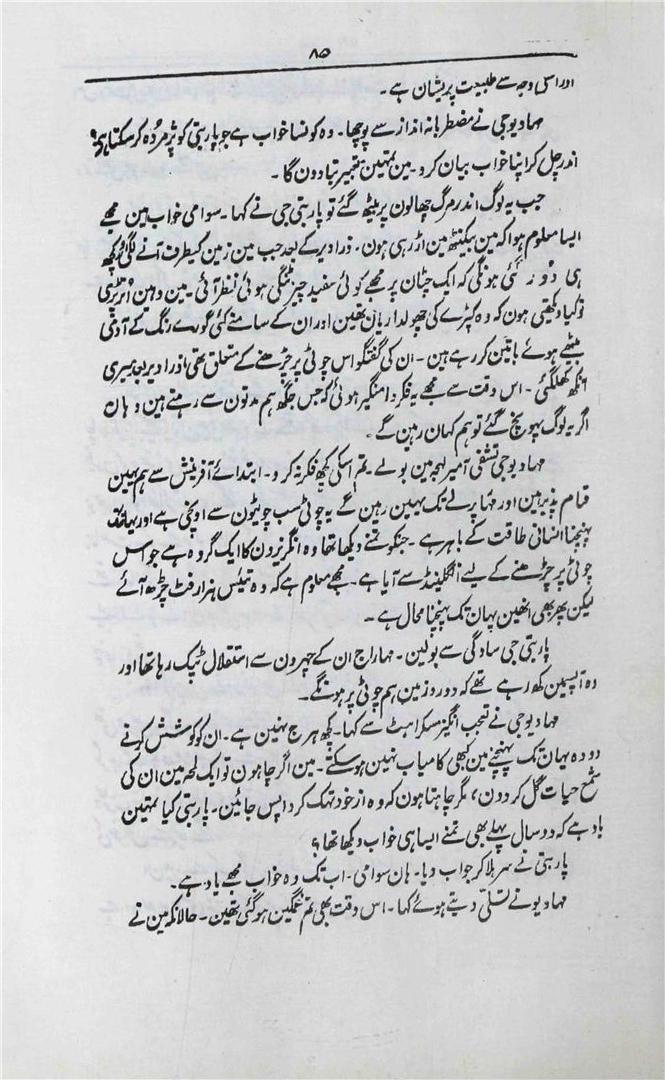 ۸۵
اور اسی وجہ سے طبیعت پریشان ہے۔
مہادیوجی نے مضطربانہ انداز سے پوچھا۔ وہ کونسا خواب ہے جو پاربتی کو پژمردہ کر سکتا ہی؟
اندر چل کر اپنا خواب بیان کرو۔ مین تمہین تعبیر بتادون گا۔
جب یہ لوگ اندر مرگ چھالون پر بیٹھ گئے تو پاربتی جی نے کہا۔ سوامی خواب مین مجھے
ایسا معلوم ہوا کہ مین بیکنٹھ مین اڑ رہی ہون۔ ذرا دیر کے بعد جب مین زمین کیطرف آنے لگی تو کچھ
ہی دور گئی ہونگی کہ ایک چٹان پر مجھے کوئی سفید چیز ٹنگی ہوئی نظر آئی۔ مین وہین اُتر پڑی
تو کیا دیکھتی ہون کہ وہ کپڑے کی چھولداریان تھین اور ان کے سامنے کئی گورے رنگ کے آدمی
بیٹھے ہوئے باتین کر رہے ہین۔ ان کی گفتگو اس چوٹی پر چڑھنے کے متعلق تھی ذرا دیر بعد میری
آنکھ کھلگئی۔ اس وقت سے مجھے یہ فکر دامنگیر ہوئی کہ جس جگھ ہم مدتون سے رہتے ہین وہان
اگر یہ لوگ پہونچ گئے تو ہم کہان رہین گے۔
مہادیوجی تشفی آمیز لہجہ مین بولے۔ تم اسکی کچھ فکر نہ کرو۔ ابتدائے آفرینش سے ہم یہین
قیام پذیر ہین اور مہاپرلے تک یہین رہین گے یہ چوٹی سب چوٹیون سے اونچی ہے اور یہانتک
پہنچنا انسانی طاقت کے باہر ہے۔ جنکو تمنے دیکھا تھا وہ انگریزون کا ایک گروہ ہے جو اس
چوٹی پر چڑھنے کے لیے انگلینڈ سے آیا ہے۔ مجھے معلوم ہے کہ وہ تیئس ہزار فٹ چڑھ آئے
لیکن پھر بھی انھین یہان تک پہنچنا محال ہے۔
پاربتی جی سادگی سے بولین۔ مہاراج ان کے چہرون سے استقلال ٹپک رہا تھا اور
وہ آپسمین کہہ رہے تھے کہ دو روز مین ہم چوٹی پر ہونگے۔
مہادیوجی نے تعجب انگیز مسکراہٹ سے کہا۔ کچھ ہرج نہین ہے۔ ان کو کوشش کرنے
دو وہ یہان تک پہنچنے مین کبھی کامیاب نہین ہو سکتے۔ مین اگر چاہون تو ایک لمحہ مین ان کی
شمع حیات گل کر دون، مگر چاہتا ہون کہ وہ از خود تھک کر واپس جائین۔ پاربتی کیا تمہین
یاد ہے کہ دو سال پہلے بھی تمنے ایسا ہی خواب دیکھا تھا؟
پاربتی نے سر ہلا کر جواب دیا۔ ہان سوامی۔ اب تک وہ خواب مجھے یاد ہے۔
مہادیو نے تسلی دیتے ہوئے کہا۔ اس وقت بھی تم غمگین ہوگئی تھین۔ حالانکہ مین نے